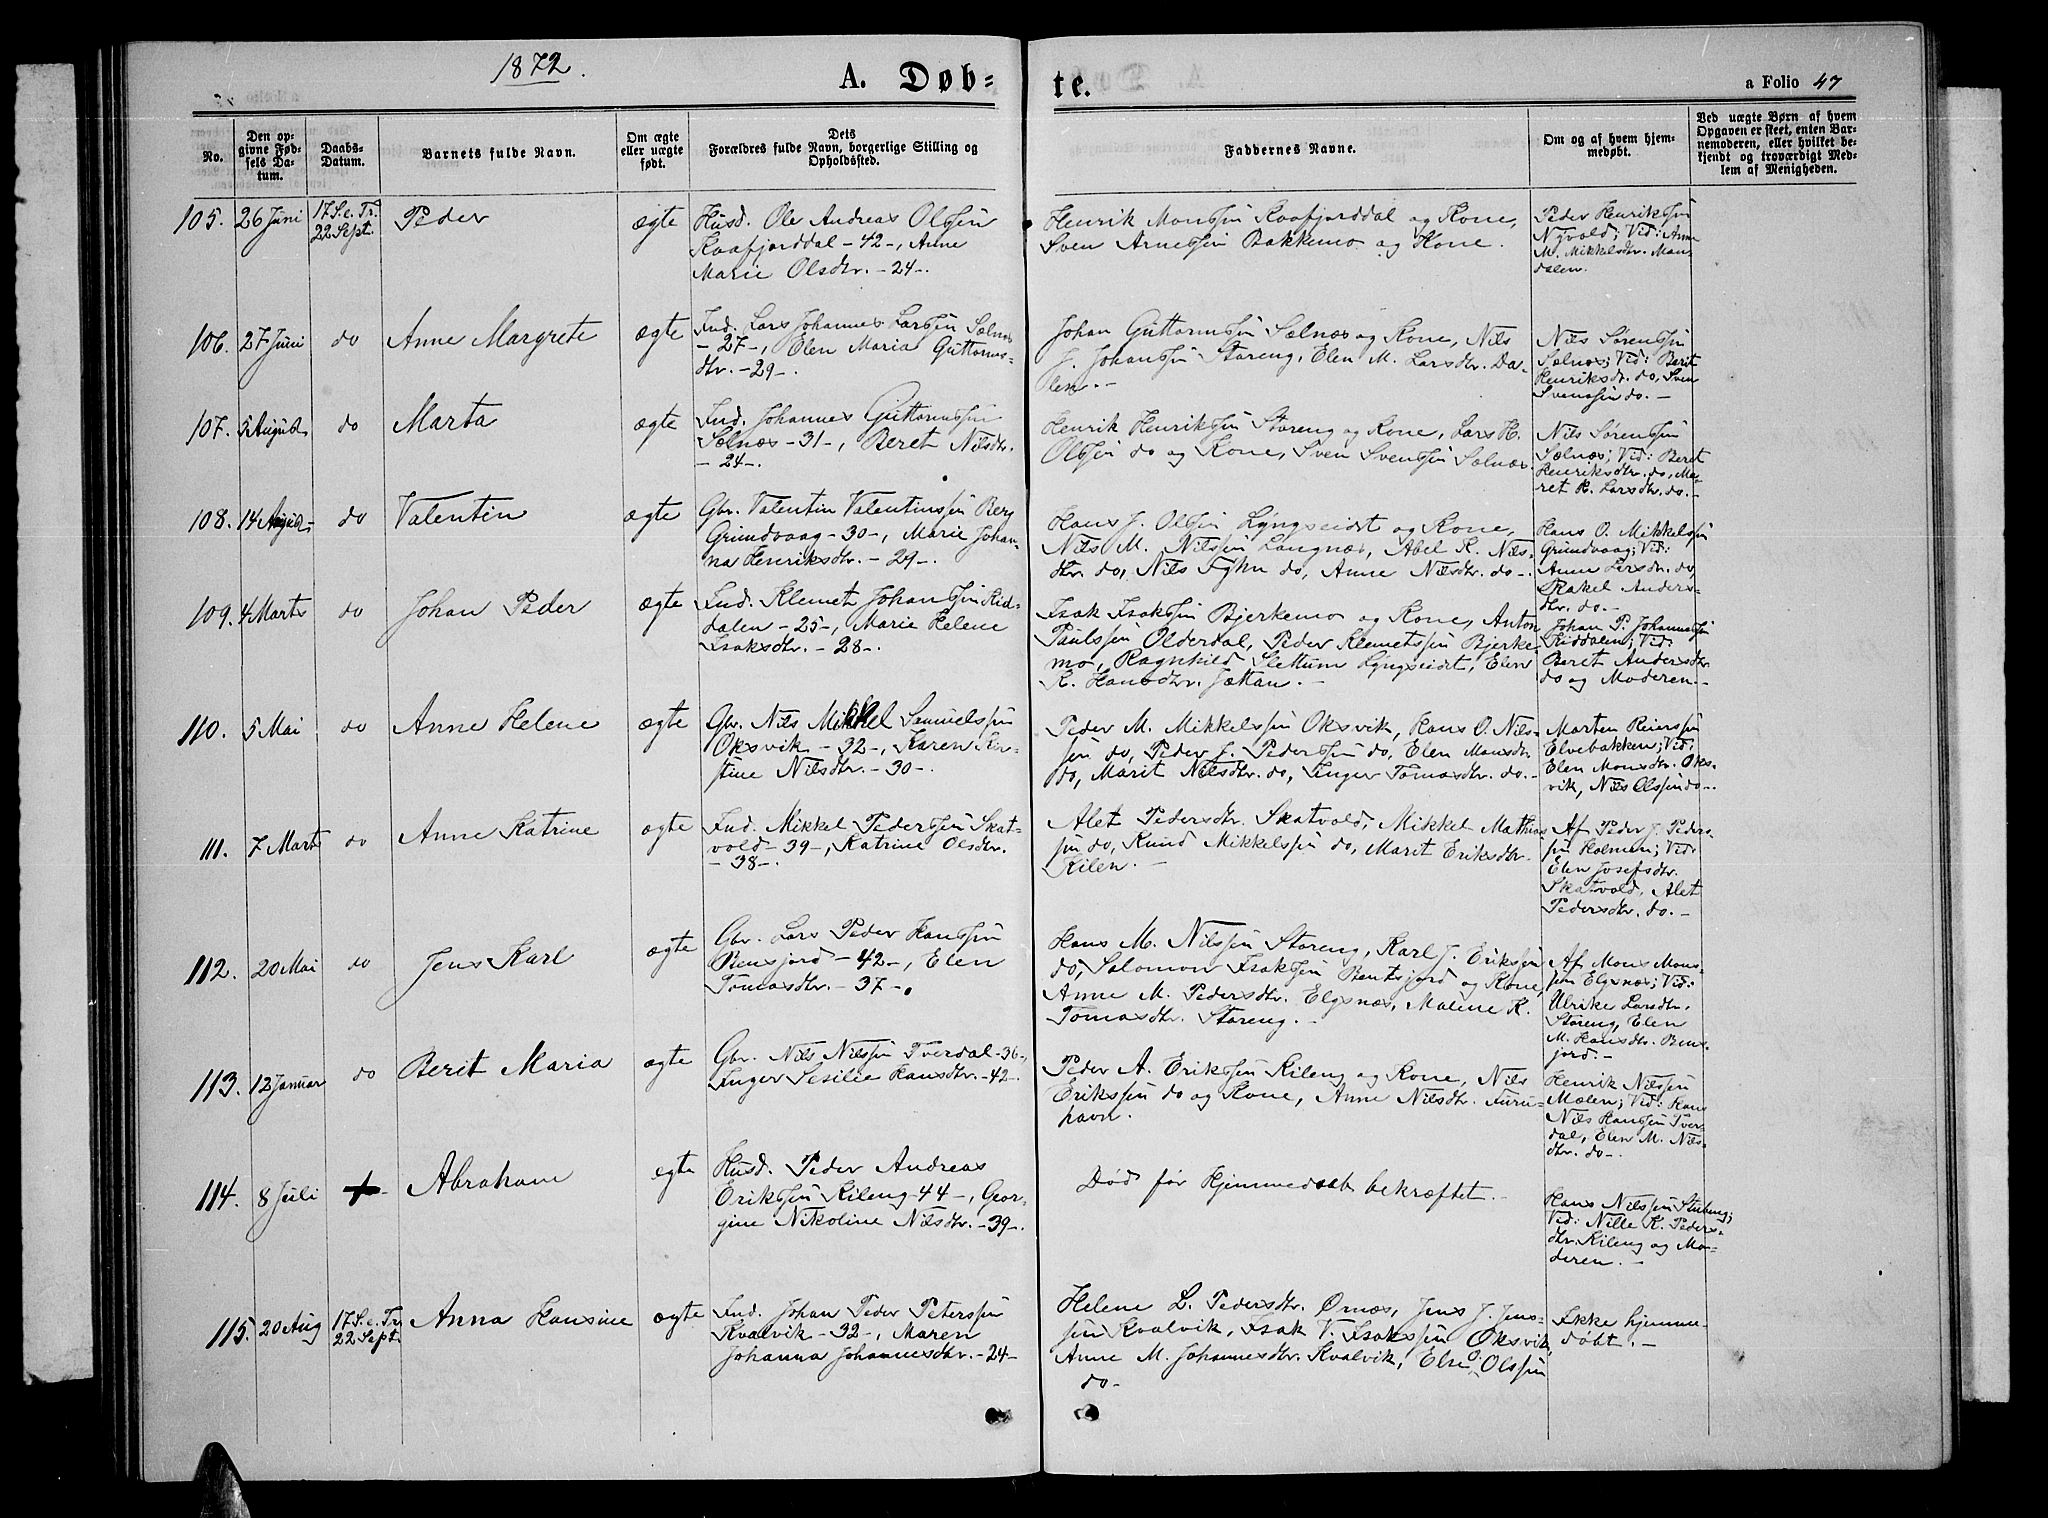 1872.
A. Døb=
te.
a Folio 47
No.
Den op=
givne Fød=
sels Da=
tum.
Daabs=
Datum.
Barnets fulde Navn.
Om ægte
eller uægte
født.
Dets
Forældres fulde Navn, borgerlige Stilling og
Opholdssted.
Faddernes Navne.
Om og af hvem hjem=
medøbt.
Ved uægte Børn af hvem
Opgaven er skeet, enten Bar=
nemoderen, eller hvilket be=
kjendt og troværdigt Med=
lem af Menigheden.
105. 26 Juni
17 S. e. Tr.
22 Sept.
Peder
ægte
Husd. Ole Andreas Olssen
Kaafjorddal - 42 -, Anne
Marie Olsdtr. - 24 -.
Henrik Monssen Kaafjorddal og Kone,
Sven Arnessen Bakkemo og Kone.
Peder Henrikssen
Nyvold; Vid: Anne
M. Mikkelsdtr. Man-
dalen.
106. 27 Juni
do
Anne Margrete
ægte
Ind. Lars Johannes Larssen Sælnæs
- 27 -, Elen Maria Guttorms-
dtr. - 29 -.
Johan Guttormssen Sælnæs og Kone, Nils
J. Johanssen Storeng, Elen M. Larsdtr. Da-
len. -
Nils Sørenssen
Sælnæs; Vid: Berit
Henriksdtr. do, Sven
Svenssen do. -
107. 5 August
do
Marta
ægte
Ind. Johannes Guttormssen
Sælnæs - 31 -, Beret Nilsdtr.
- 24 -.
Henrik Henrikssen Storeng og Kone, Lars H.
Olssen do og Kone, Sven Svenssen Sælnæs.
Nils Sørenssen
Sælnæs; Vid: Beret
Henriksdtr. do, Ma-
ret K. Larsdtr. do. -
108. 14 August
do
Valentin
ægte
Gbr. Valentin Valentinssen Berg
Grundvaag - 30 -, Marie Johan-
na Henriksdtr. - 29 -.
Hans J. Olssen Lyngseidet og Kone,
Nils M. Nilssen Langnæs, Abel K. Nils-
dtr. do, Nils Fyhn do, Anne Nilsdtr. do -.
Hans O. Mikkelssen
Grundvaag; Vid:
Anne Larsdtr. do,
Rakel Anders-
dtr. do. -
109. 4 Marts
do
Johan Peder
ægte
Ind. Klemet Johanssen Kid-
dalen - 25 -, Marie Helene
Isaksdtr. - 28 -.
Isak Isakssen Bjerkemo og Kone, Anton
Paulssen Olderdal, Peder Klemetssen Bjerke-
mo, Ragnhild Slettum Lyngseidet, Elen
K. Hansdtr. Jættan. -
Johan P. Johannessen
Kiddalen; Vid:
Beret Andersdtr.
do og Moderen. -
110. 5 Mai
do
Anne Helene
ægte
Gbr. Nils Mikkel Samuelssen
Oksvik - 32 -, Karen Kir-
stine Nilsdtr. - 30 -.
Peder M. Mikkelssen Oksvik, Hans O. Nils-
sen do, Peder J. Pederssen do, Elen Monsdtr.
do, Marit Nilsdtr. do, Inger Tomasdtr. do. -
Morten Reierssen
Elvebakken; Vid:
Elen Monsdtr. Oks-
vik, Nils Olssen do -.
111. 7 Marts
do
Anne Katrine
ægte
Ind. Mikkel Pederssen Skat-
vold - 39 -, Katrine Olsdtr.
- 38 -.
Alet Pedersdtr. Skatvold, Mikkel Mathias-
sen do, Knud Mikkelssen do, Marit Eriksdtr.
Kilen. -
Af Peder J. Peders-
sen Holmen; Vid:
Elen Josefsdtr.
Skatvold, Alet
Pedersdtr. do. -
112. 20 Mai
do
Jens Karl
ægte
Gbr. Lars Peder Hanssen
Bensjord - 42 -, Elen
Tomasdtr. - 37 -.
Hans M. Nilssen Storeng, Karl J. Erikssen
do, Salomon Isakssen Bentsjord og Kone,
Anne M. Pedersdtr. Elgsnæs, Malene K.
Tomasdtr. Storeng. -
Af Mons Mons-
sen Elgsnæs; Vid:
Ulrike Larsdtr.
Storeng, Elen
M. Hansdtr. Bens-
jord. -
113. 12 Januar
do
Berit Maria
ægte
Gbr. Nils Nilssen Tverdal - 36 -,
Inger Sesilie Hansdtr. - 42 -.
Peder A. Erikssen Kileng og Kone, Nils
Erikssen do og Kone, Anne Nilsdtr. Furu-
havn.
Henrik Nilssen
Mælen; Vid: Hans
Nils Hanssen Tver-
dal, Elen M. Nils-
dtr. do -.
114. 8 Juli
Abraham
ægte
Husd. Peder Andreas
Erikssen Kileng - 44 -, Geor-
gine Nikoline Nilsdtr. - 39 -.
Død før Hjemmedaab bekræftet. -
Hans Nilssen
Vid: Nille K. Peders-
dtr. Kileng og Mo-
deren. -
115. 20 Aug
17 S. e. Tr.
22 Sept.
Anna Hansine
ægte
Ind. Johan Peder Peterssen
Kvalvik - 32 -, Maren
Johanna Johannesdtr. - 24 -
Helene L. Pedersdtr. Ørnæs, Jens J. Jens-
sen Kvalvik, Isak V. Isakssen Oksvik,
Anne M. Johannesdtr. Kvalvik, Else O. Olssen
do -
Ikke hjemme-
døbt. -